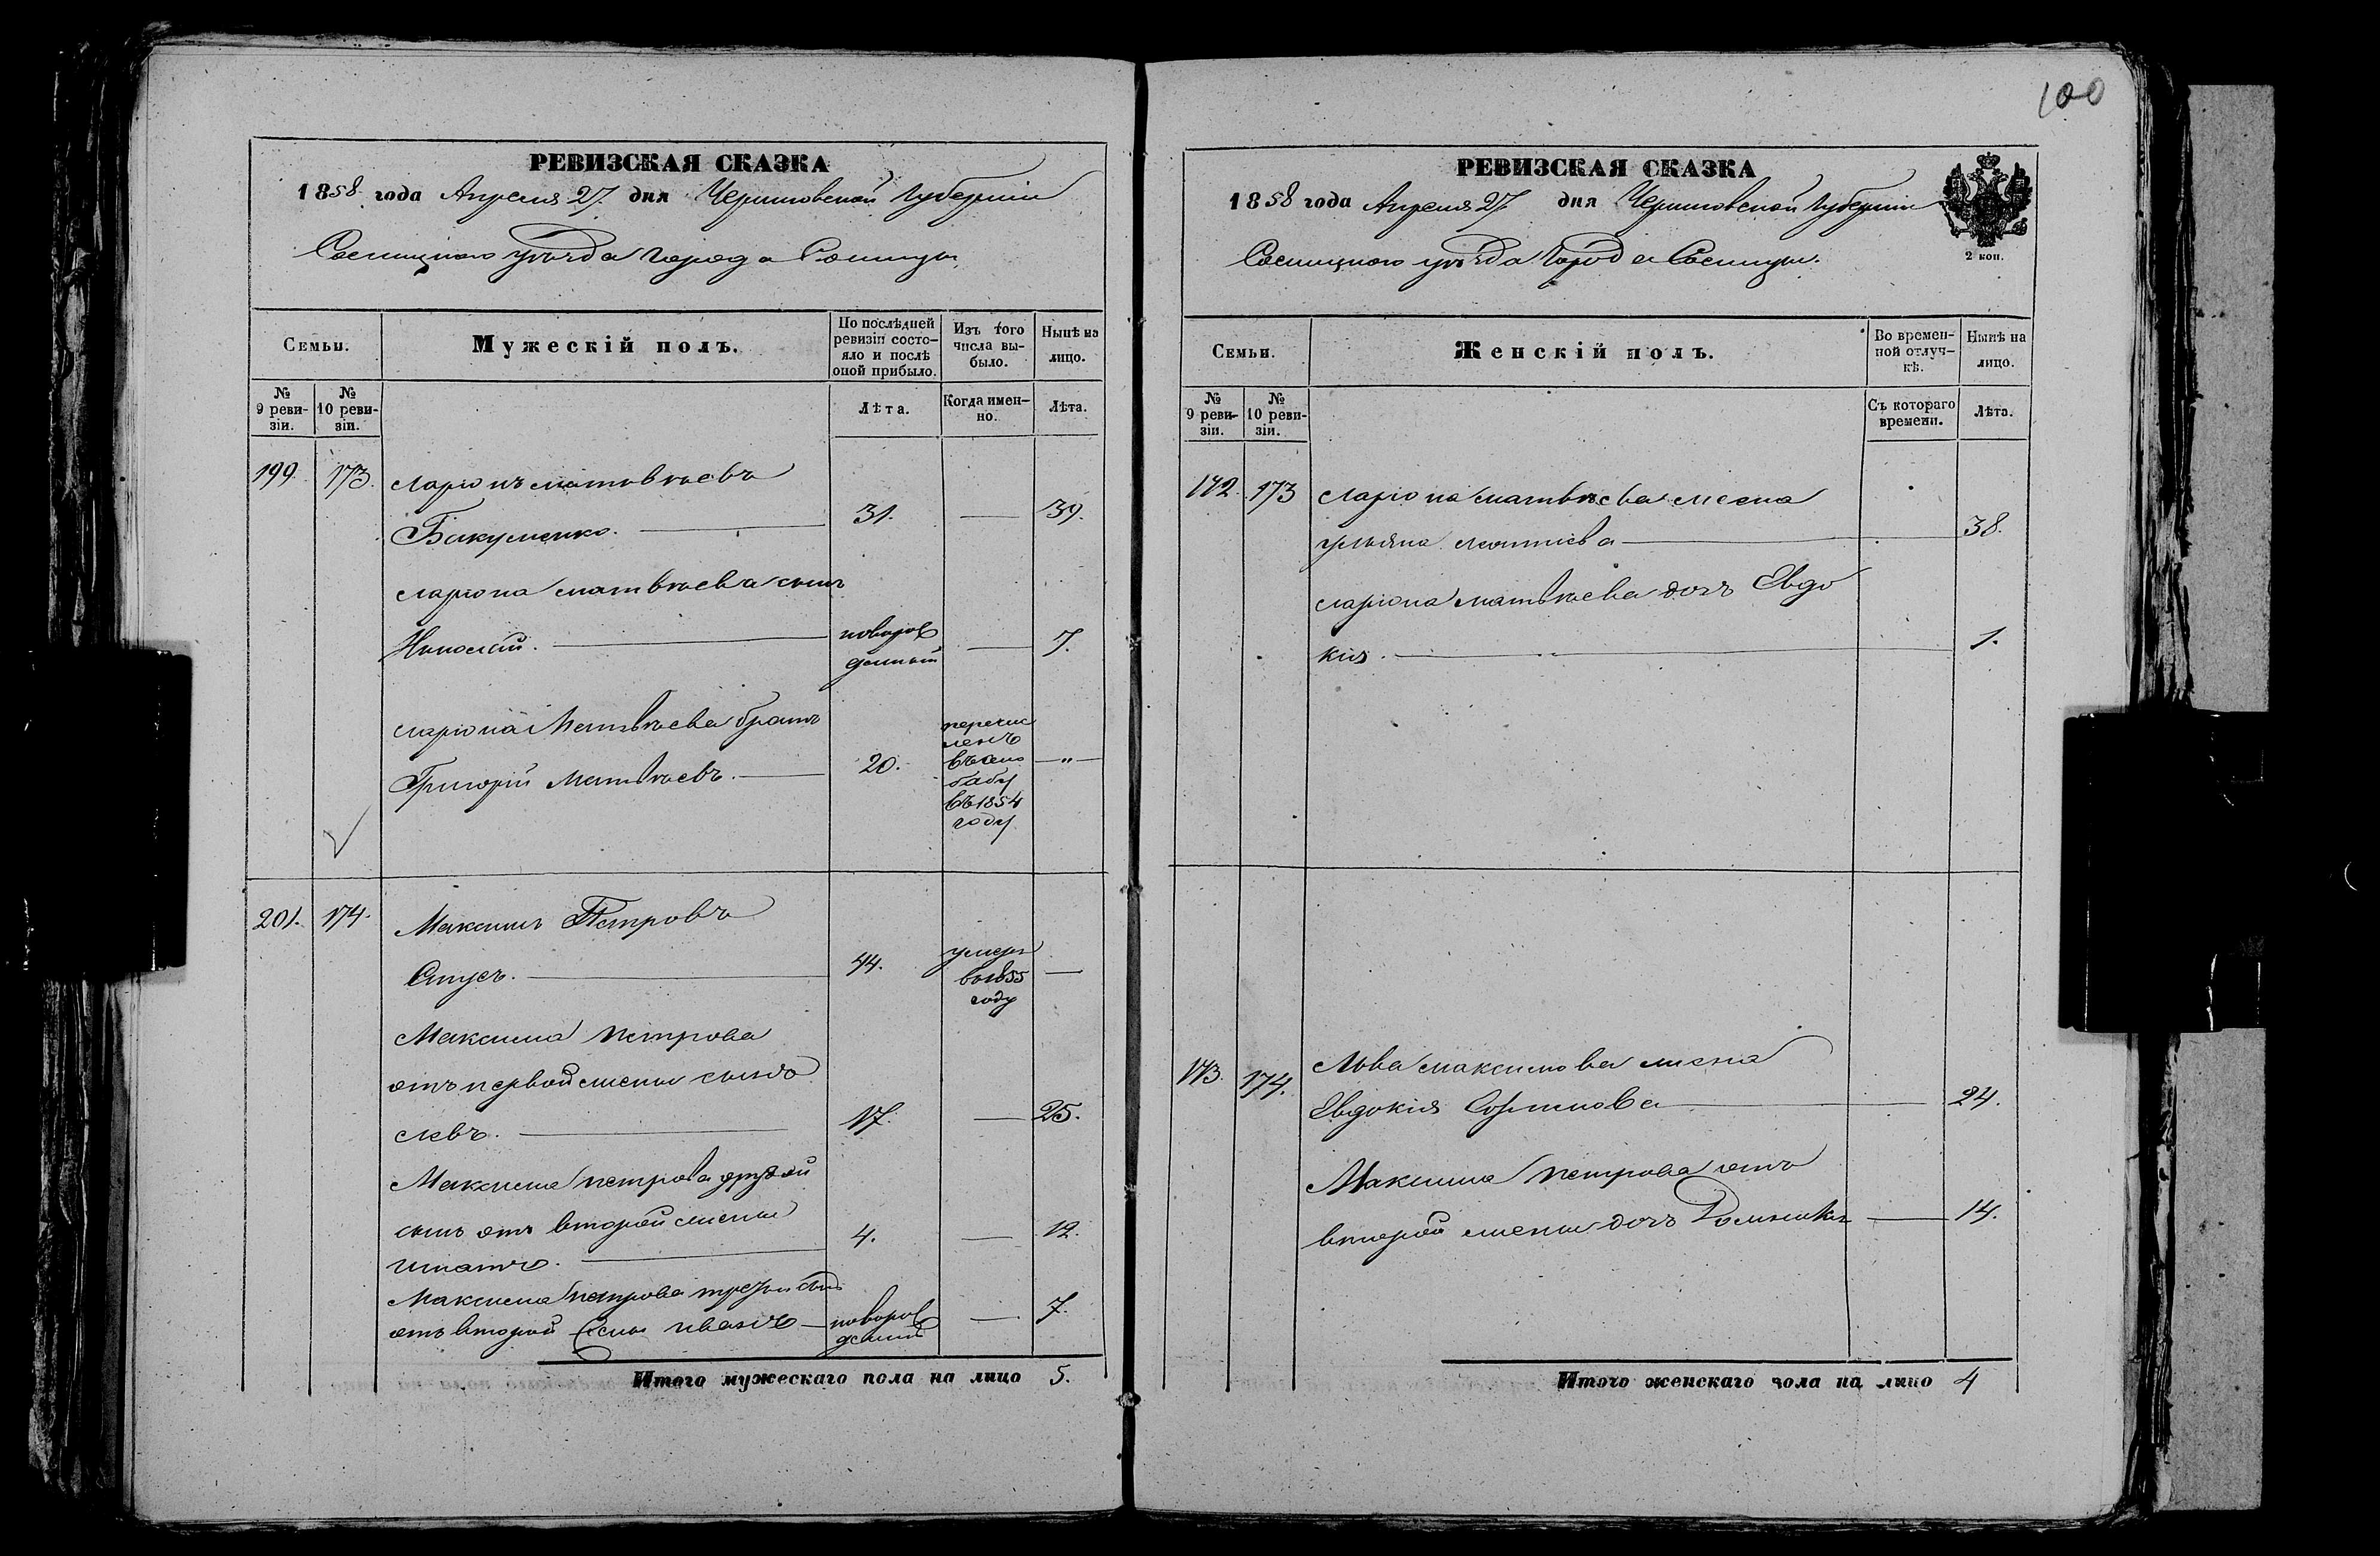 100
РЕВИЗСКАЯ СКАЗКА
1858 года Апреля 27 дня Черниговской Губернии
Сосницкого уѣзда города Сосницы
Семьи.
Мужескій полъ.
По послѣдней ревизіи состояло и послѣ оной прибыло.
Изъ того числа выбыло.
Нынѣ на лицо.
№ 9 ревизіи.
№ 10 ревизіи.
Лѣта.
Когда именно.
Лѣта.
199. 173. Ларионъ Матвѣевъ
Бакуменко. 31. — 39.
Лариона Матвѣева сынъ
Николай. новорожденный — 7.
Лариона Матвѣева братъ
Григорій Матвѣевъ. 20. перечисленъ въ 1854 году — „ —
201. 174. Максимъ Петровъ
44. умеръ въ 1855 году —
Максима Петрова
отъ первой жены сынъ
Левъ. 17. — 25.
Максима Петрова другой
сынъ отъ второй жены
Игнатъ. 4. — 12.
Максима Петрова третій сынъ
отъ второй жены Иванъ — новорожденный — 7.
Итого мужескаго пола на лицо 5.
РЕВИЗСКАЯ СКАЗКА
1858 года Апреля 27 дня Черниговской Губернии
Сосницкого уѣзда Города Сосницы.
2 коп.
Семьи.
Женскій полъ.
Во временной отлучкѣ.
Нынѣ на лицо.
№ 9 ревизіи.
№ 10 ревизіи.
Съ котораго времени.
Лѣта.
172. 173 Лариона Матвѣева жена
Ульяна Леонтиева — 38.
Лариона Матвѣева дочь Евдо
кия. — 1.
173. 174. Льва Максимова жена
Евдокия — 24.
Максима Петрова отъ
второй жены дочь Домникия — 14.
Итого женскаго пола на лицо 4